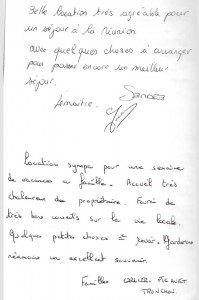 Belle location très agréable pour
un séjour à la réunion
avec quelques choses à arranger
pour passer encore un meilleur
séjour.
Sandra
Lemaitre.
Location sympa pour une semaine
de vacances en famille. Accueil très
chaleureux du propriétaire. Fourni de
très bons conseils sur la vie locale.
Quelques petites choses à revoir. Garderons
néanmoins un excellent souvenir.
Familles
TRONCHON.